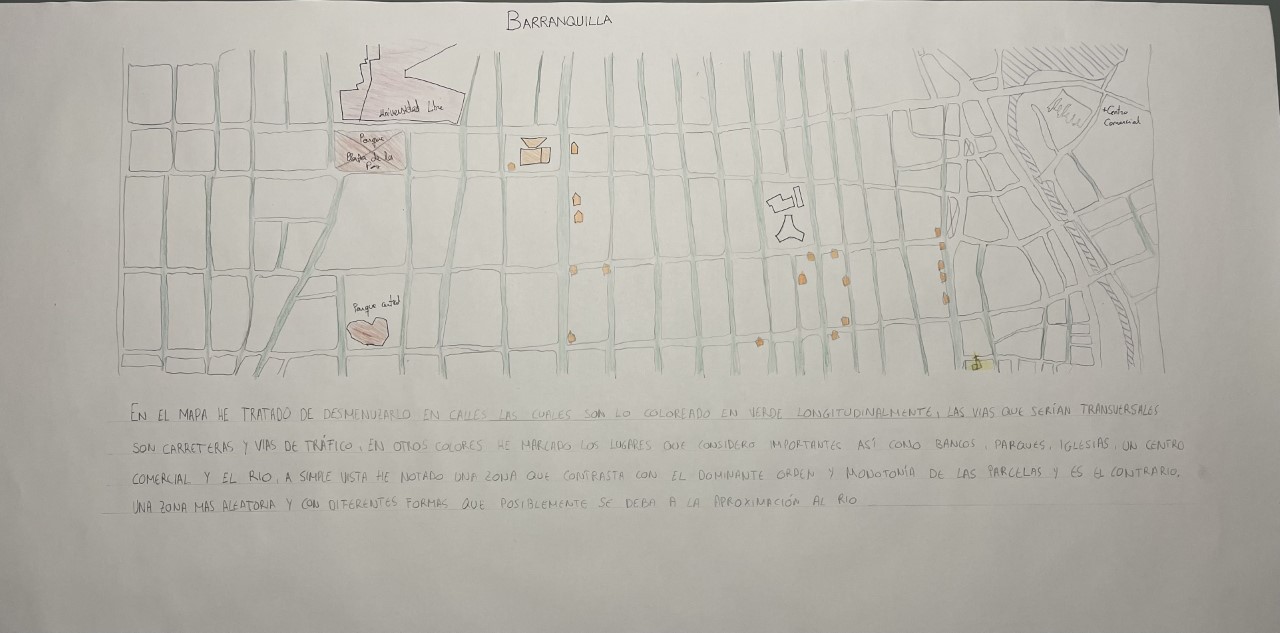 BARRANQUILLA
Universidad Libre
Parque
Plaza de la
Paz
+Centro
Comercial
Parque central
$
EN EL MAPA HE TRATADO DE DESMENUZARLO EN CALLES LAS CUALES SON LO COLOREADO EN VERDE LONGITUDINALMENTE, LAS VIAS QUE SERÍAN TRANSVERSALES
SON CARRETERAS Y VIAS DE TRÁFICO, EN OTROS COLORES HE MARCADO LOS LUGARES QUE CONSIDERO IMPORTANTES ASÍ COMO BANCOS, PARQUES, IGLESIAS, UN CENTRO
COMERCIAL Y EL RIO, A SIMPLE VISTA HE NOTADO UNA ZONA QUE CONTRASTA CON EL DOMINANTE ORDEN Y MONOTONÍA DE LAS PARCELAS Y ES EL CONTRARIO,
UNA ZONA MAS ALEATORIA Y CON DIFERENTES FORMAS QUE POSIBLEMENTE SE DEBA A LA APROXIMACIÓN AL RIO